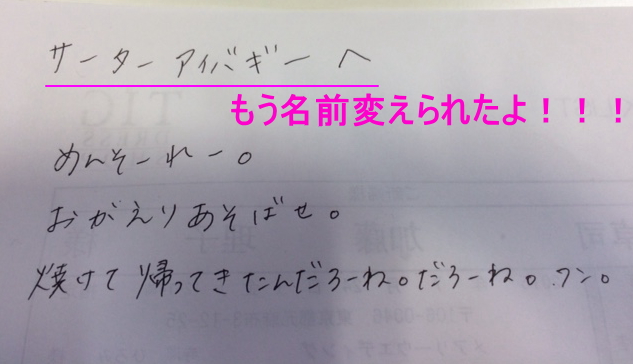 サーターアイバギーへ
もう名前変えられたよ！！！
めんそーれー。
おがえりあそばせ。
焼けて帰ってきたんだろーね。だろーね。ワン。